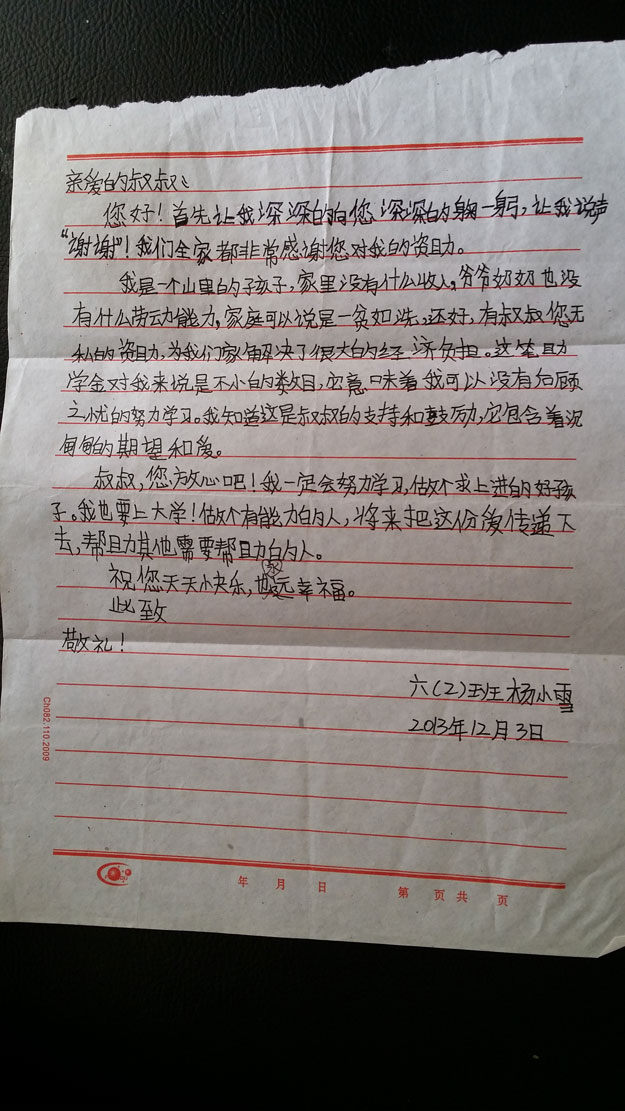 亲爱的叔叔:
您好！首先让我深深的向您深深的鞠一躬，让我说声
“谢谢”！我们全家都非常感谢您对我的资助。
我是一个山里的孩子，家里没有什么收入，爷爷奶奶也没
有什么劳动能力，家庭可以说是一贫如洗，还好，有叔叔您无
私的资助，为我们家解决了很大的经济负担。这笔助
学金对我来说是不小的数目，它意味着我可以没有后顾
之忧的努力学习。我知道这是叔叔的支持和鼓励，它包含着沉
甸甸的期望和爱。
叔叔，您放心吧！我一定会努力学习，做个求上进的好孩
子。我也要上大学！做个有能力的人，将来把这份爱传递下
去，帮助其他需要帮助的人。
祝您天天快乐，永远幸福。
此致
敬礼！
六(2)班杨小雪
2013年12月3日
Ch082.110.2009
年 月 日 第 页 共 页